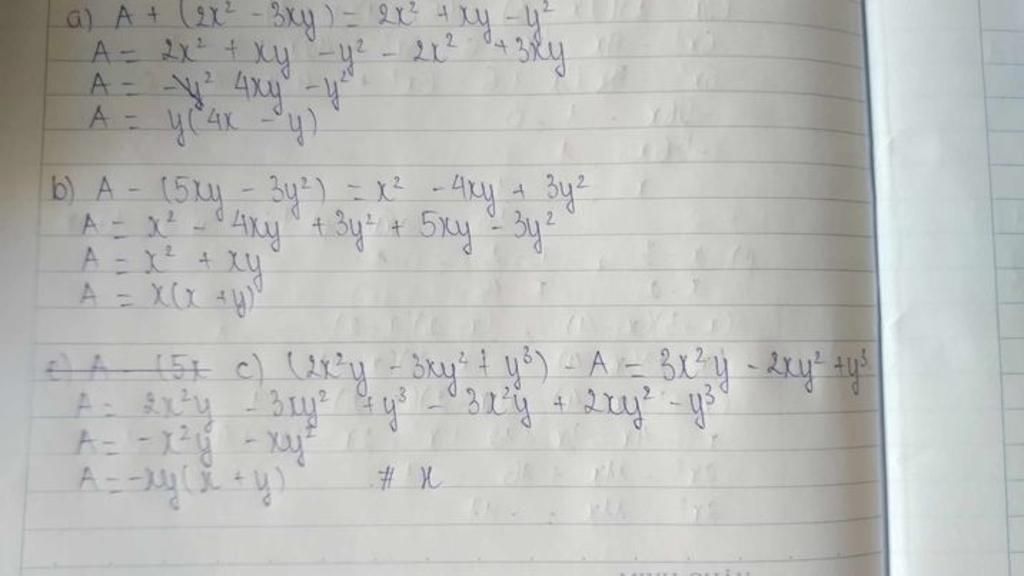 a) A + (2x² - 3xy) = 2x² + xy - y²
A = 2x² + xy - y² - 2x² + 3xy
A = 4xy - y²
A = y(4x - y)
b) A - (5xy - 3y²) = x² - 4xy + 3y²
A = x² - 4xy + 3y² + 5xy - 3y²
A = x² + xy
A = x(x + y)
c) A - (5x c) (2x²y - 3xy² + y³) - A = 3x²y - 2xy² + y³
A = 2x²y - 3xy² + y³ - 3x²y + 2xy² - y³
A = - x²y - xy²
A = -xy(x + y) #